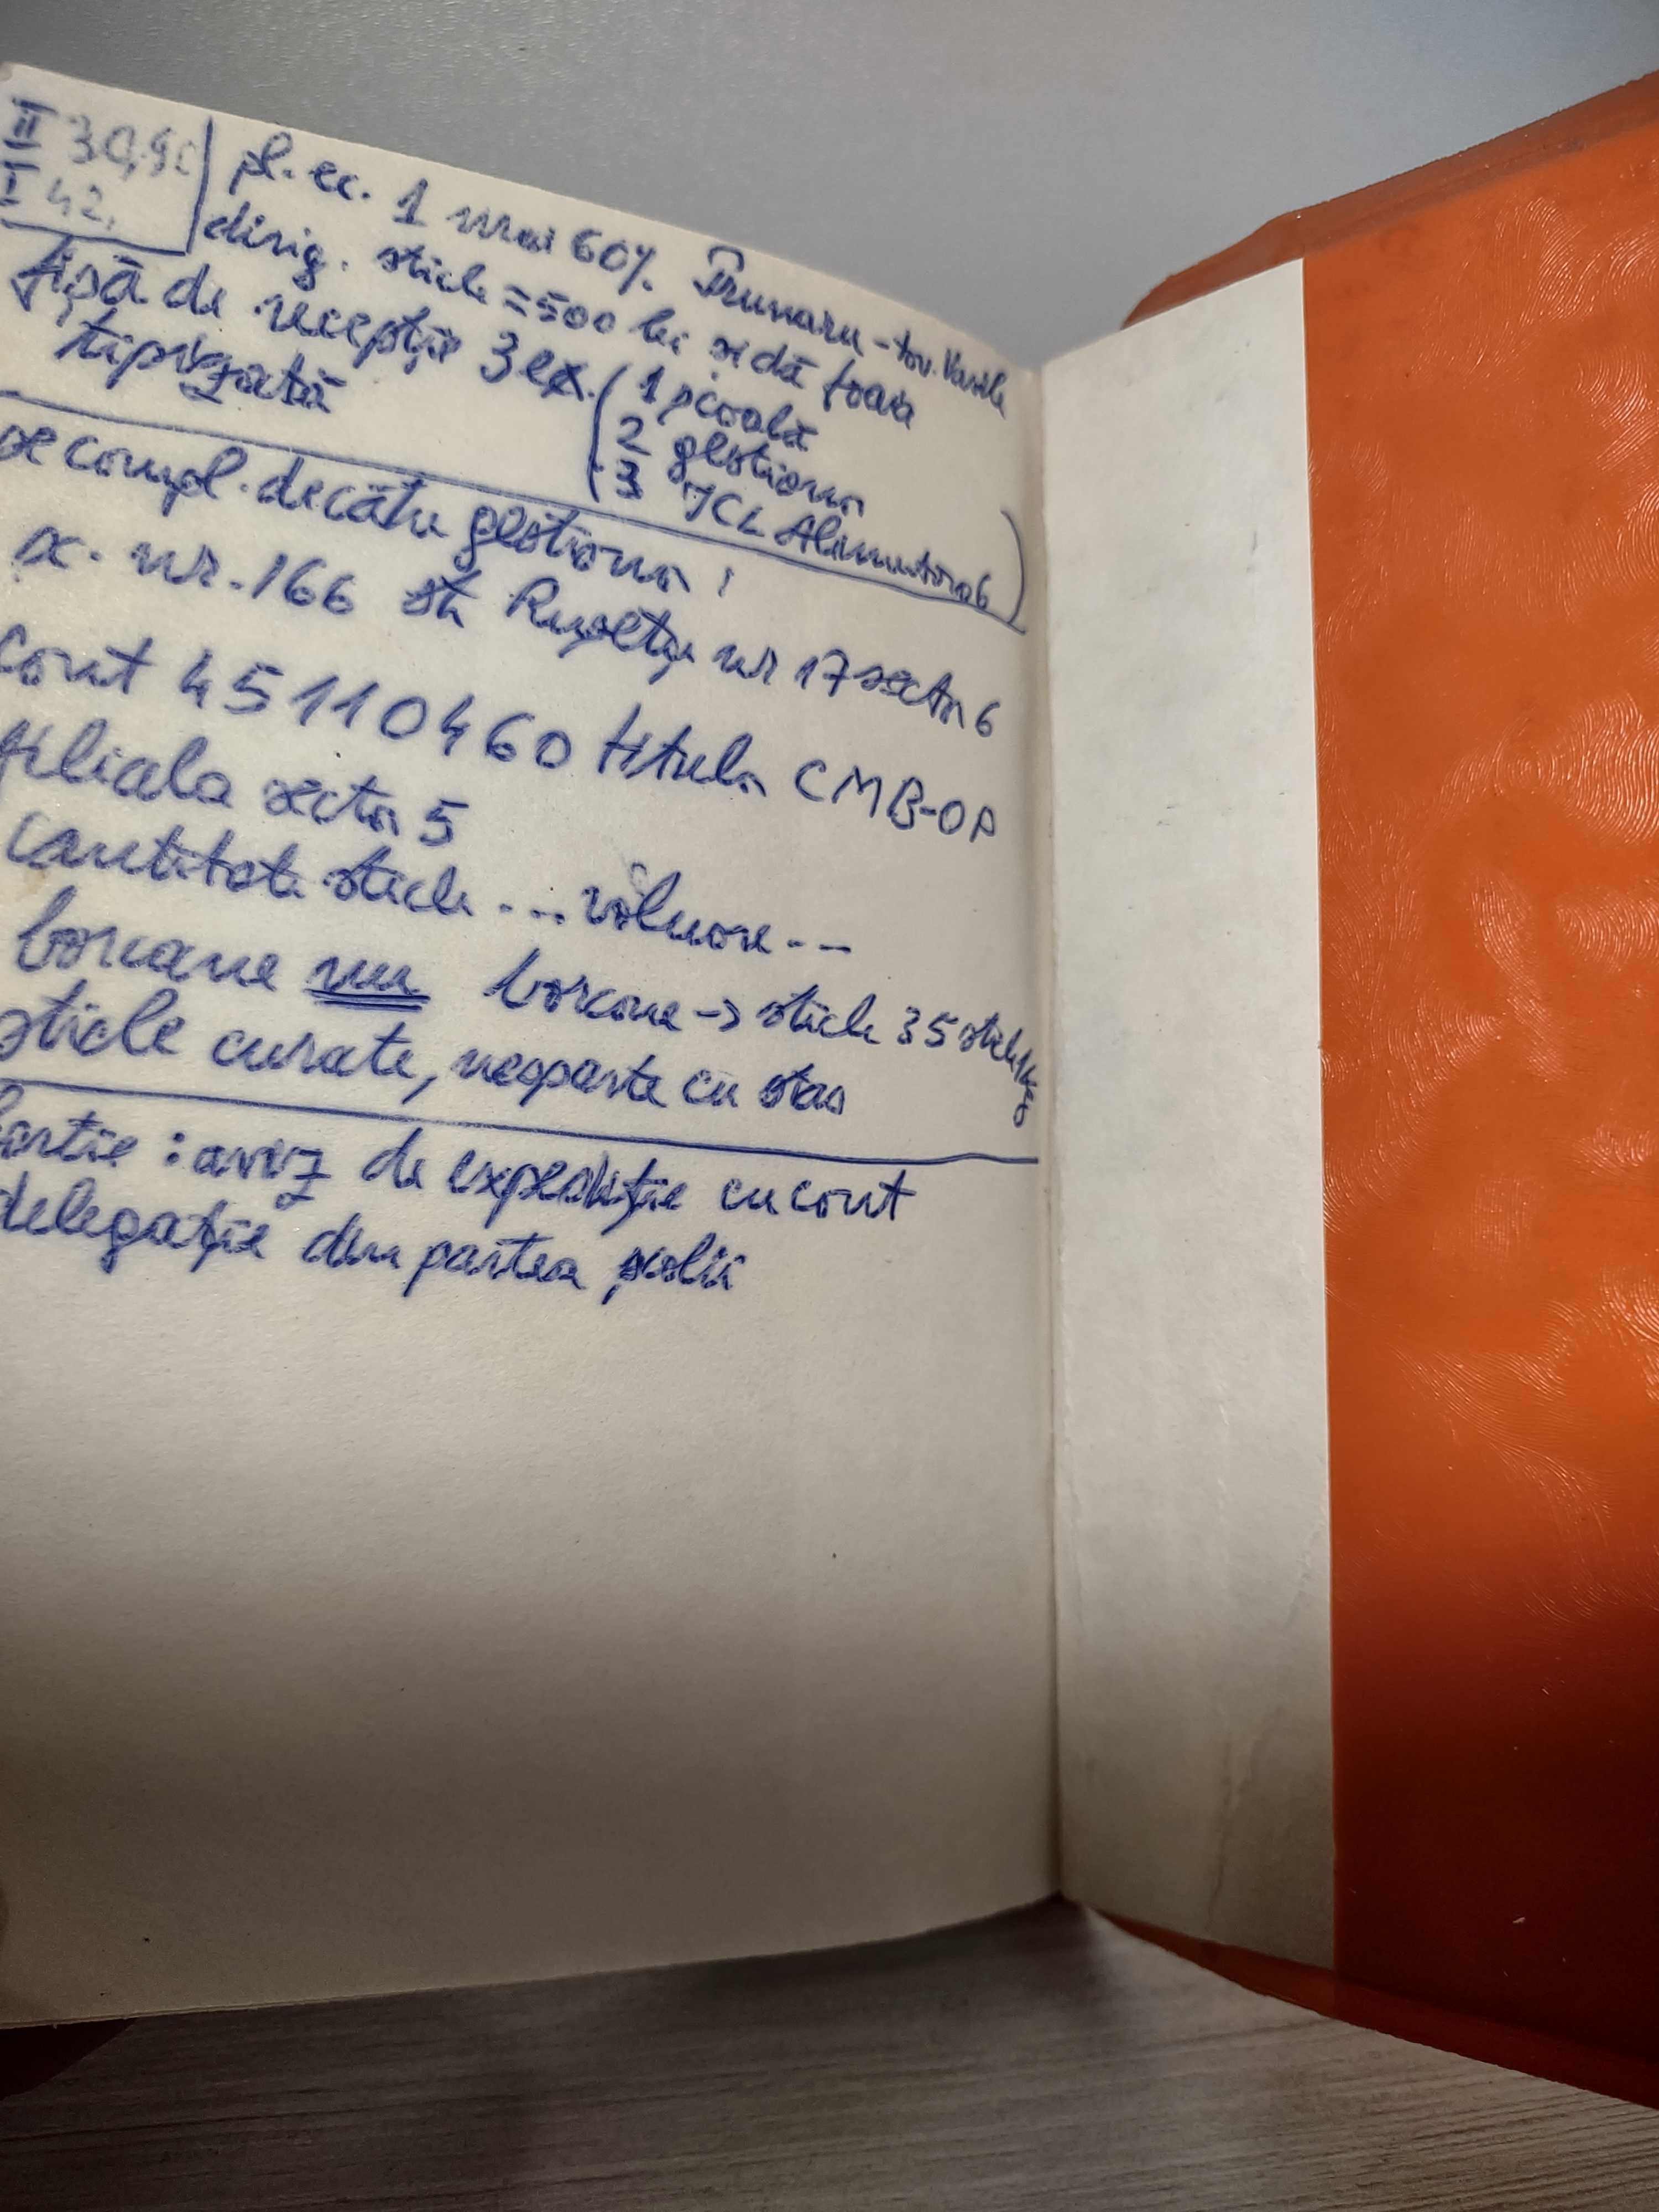 II 30,90
I 42,
pl. ec. 1 mai 60% Trunaru - tov. Vasile
dirig. sticle = 500 lei și dă
fișă de recepție 3 ex. ( 1 școală
tipizată 2 gestionar
3 ICL Alimentara 6 )
se compl. de către gestionar :
nr. 166 str Rușețu nr 17 sector 6
cont 45110460 titular CMB-OP
filiala sector 5
cantitate sticle ... valoare --
borcane nu borcane -> sticle 35 sticle
sticle curate, nesparte cu stas
hartie : aviz de expediție cu cont
delegație din partea școlii